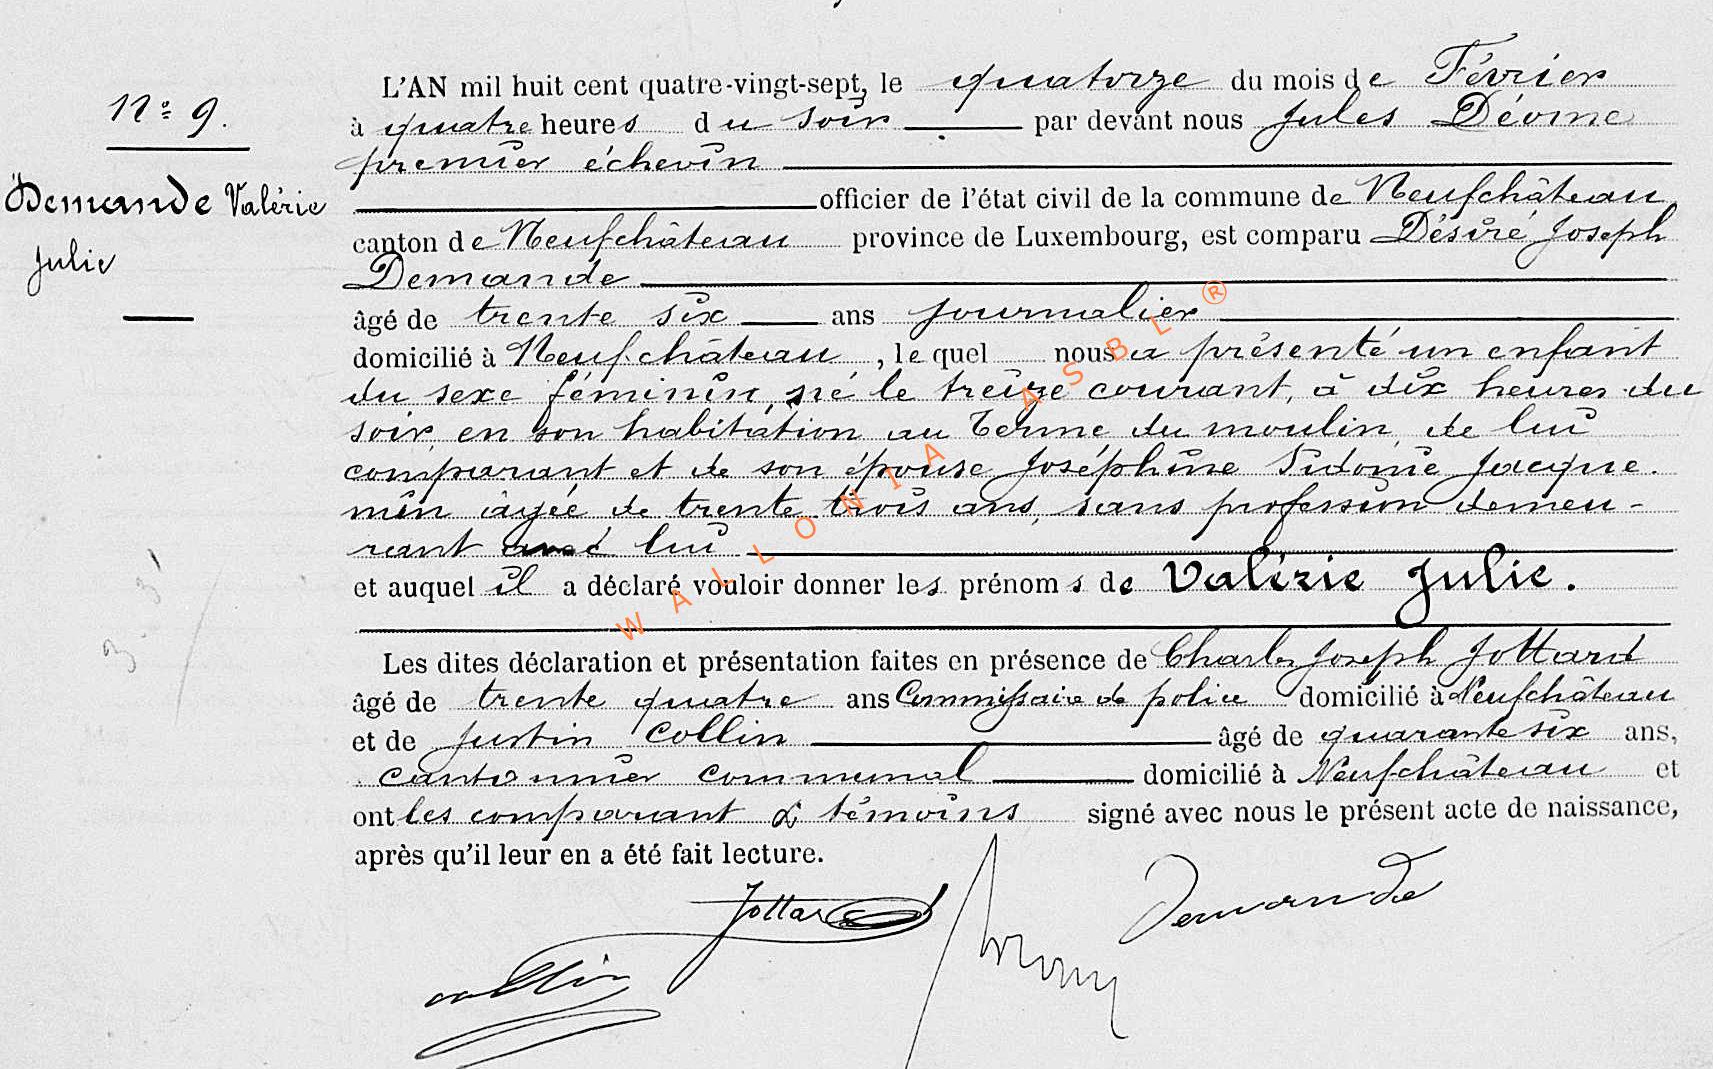 N° 9.
Demande Valérie
Julie
L'AN mil huit cent quatre-vingt-sept, le quatorze du mois de Février
à quatre heures du soir par devant nous Jules Déome
premier échevin
officier de l'état civil de la commune de Neufchâteau,
canton de Neufchâteau province de Luxembourg, est comparu Désiré Joseph
Demande
âgé de trente six ans journalier
domicilié à Neufchâteau, lequel nous a présenté un enfant
du sexe féminin, né le treize courant, à dix heures du
soir, en son habitation au Terme du moulin, de lui
comparant et de son épouse Joséphine Sidonie Jacque-
min âgée de trente trois ans, sans profession demeu-
rant avec lui
et auquel il a déclaré vouloir donner les prénoms de Valérie Julie.
Les dites déclaration et présentation faites en présence de Charles Joseph Jottard
âgé de trente quatre ans Commissaire de police domicilié à Neufchâteau
et de Justin Collin âgé de quarante six ans,
cantonnier communal domicilié à Neufchâteau et
ont les comparant & témoins signé avec nous le présent acte de naissance,
après qu'il leur en a été fait lecture.
Jottard
Demande
Collin
WALLONIA ASBL ®